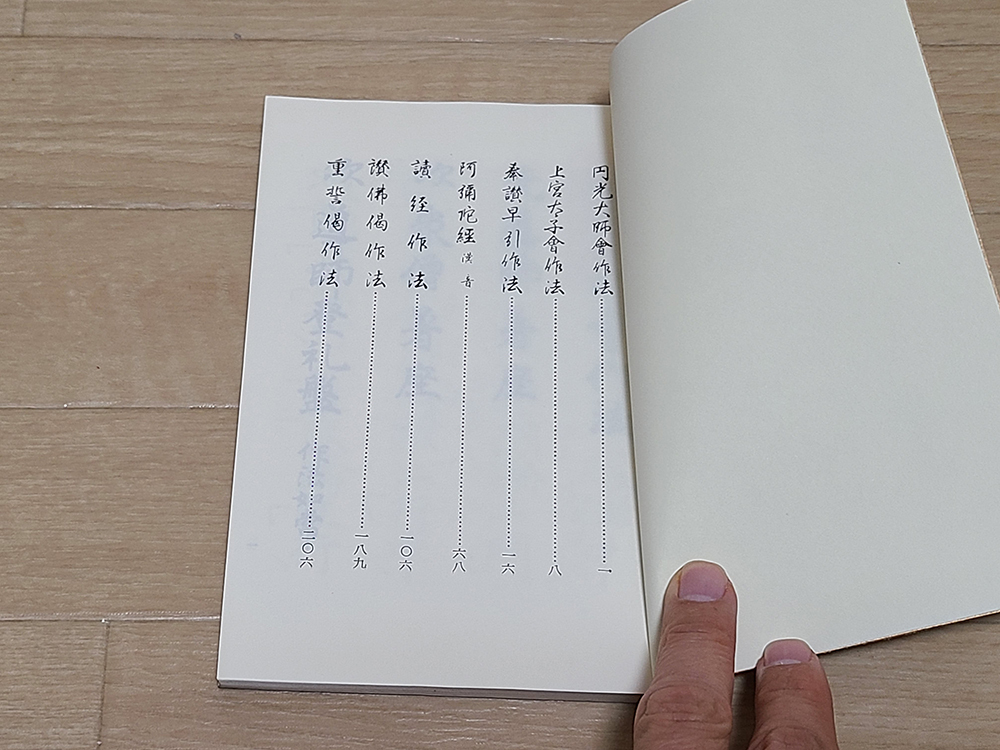 円光大師會作法……………一
上宮太子會作法……………八
奉讃早引作法……………一六
阿彌陀經 漢音……………六八
讀經作法……………一〇六
讃佛偈作法……………一八九
重誓偈作法……………二〇六